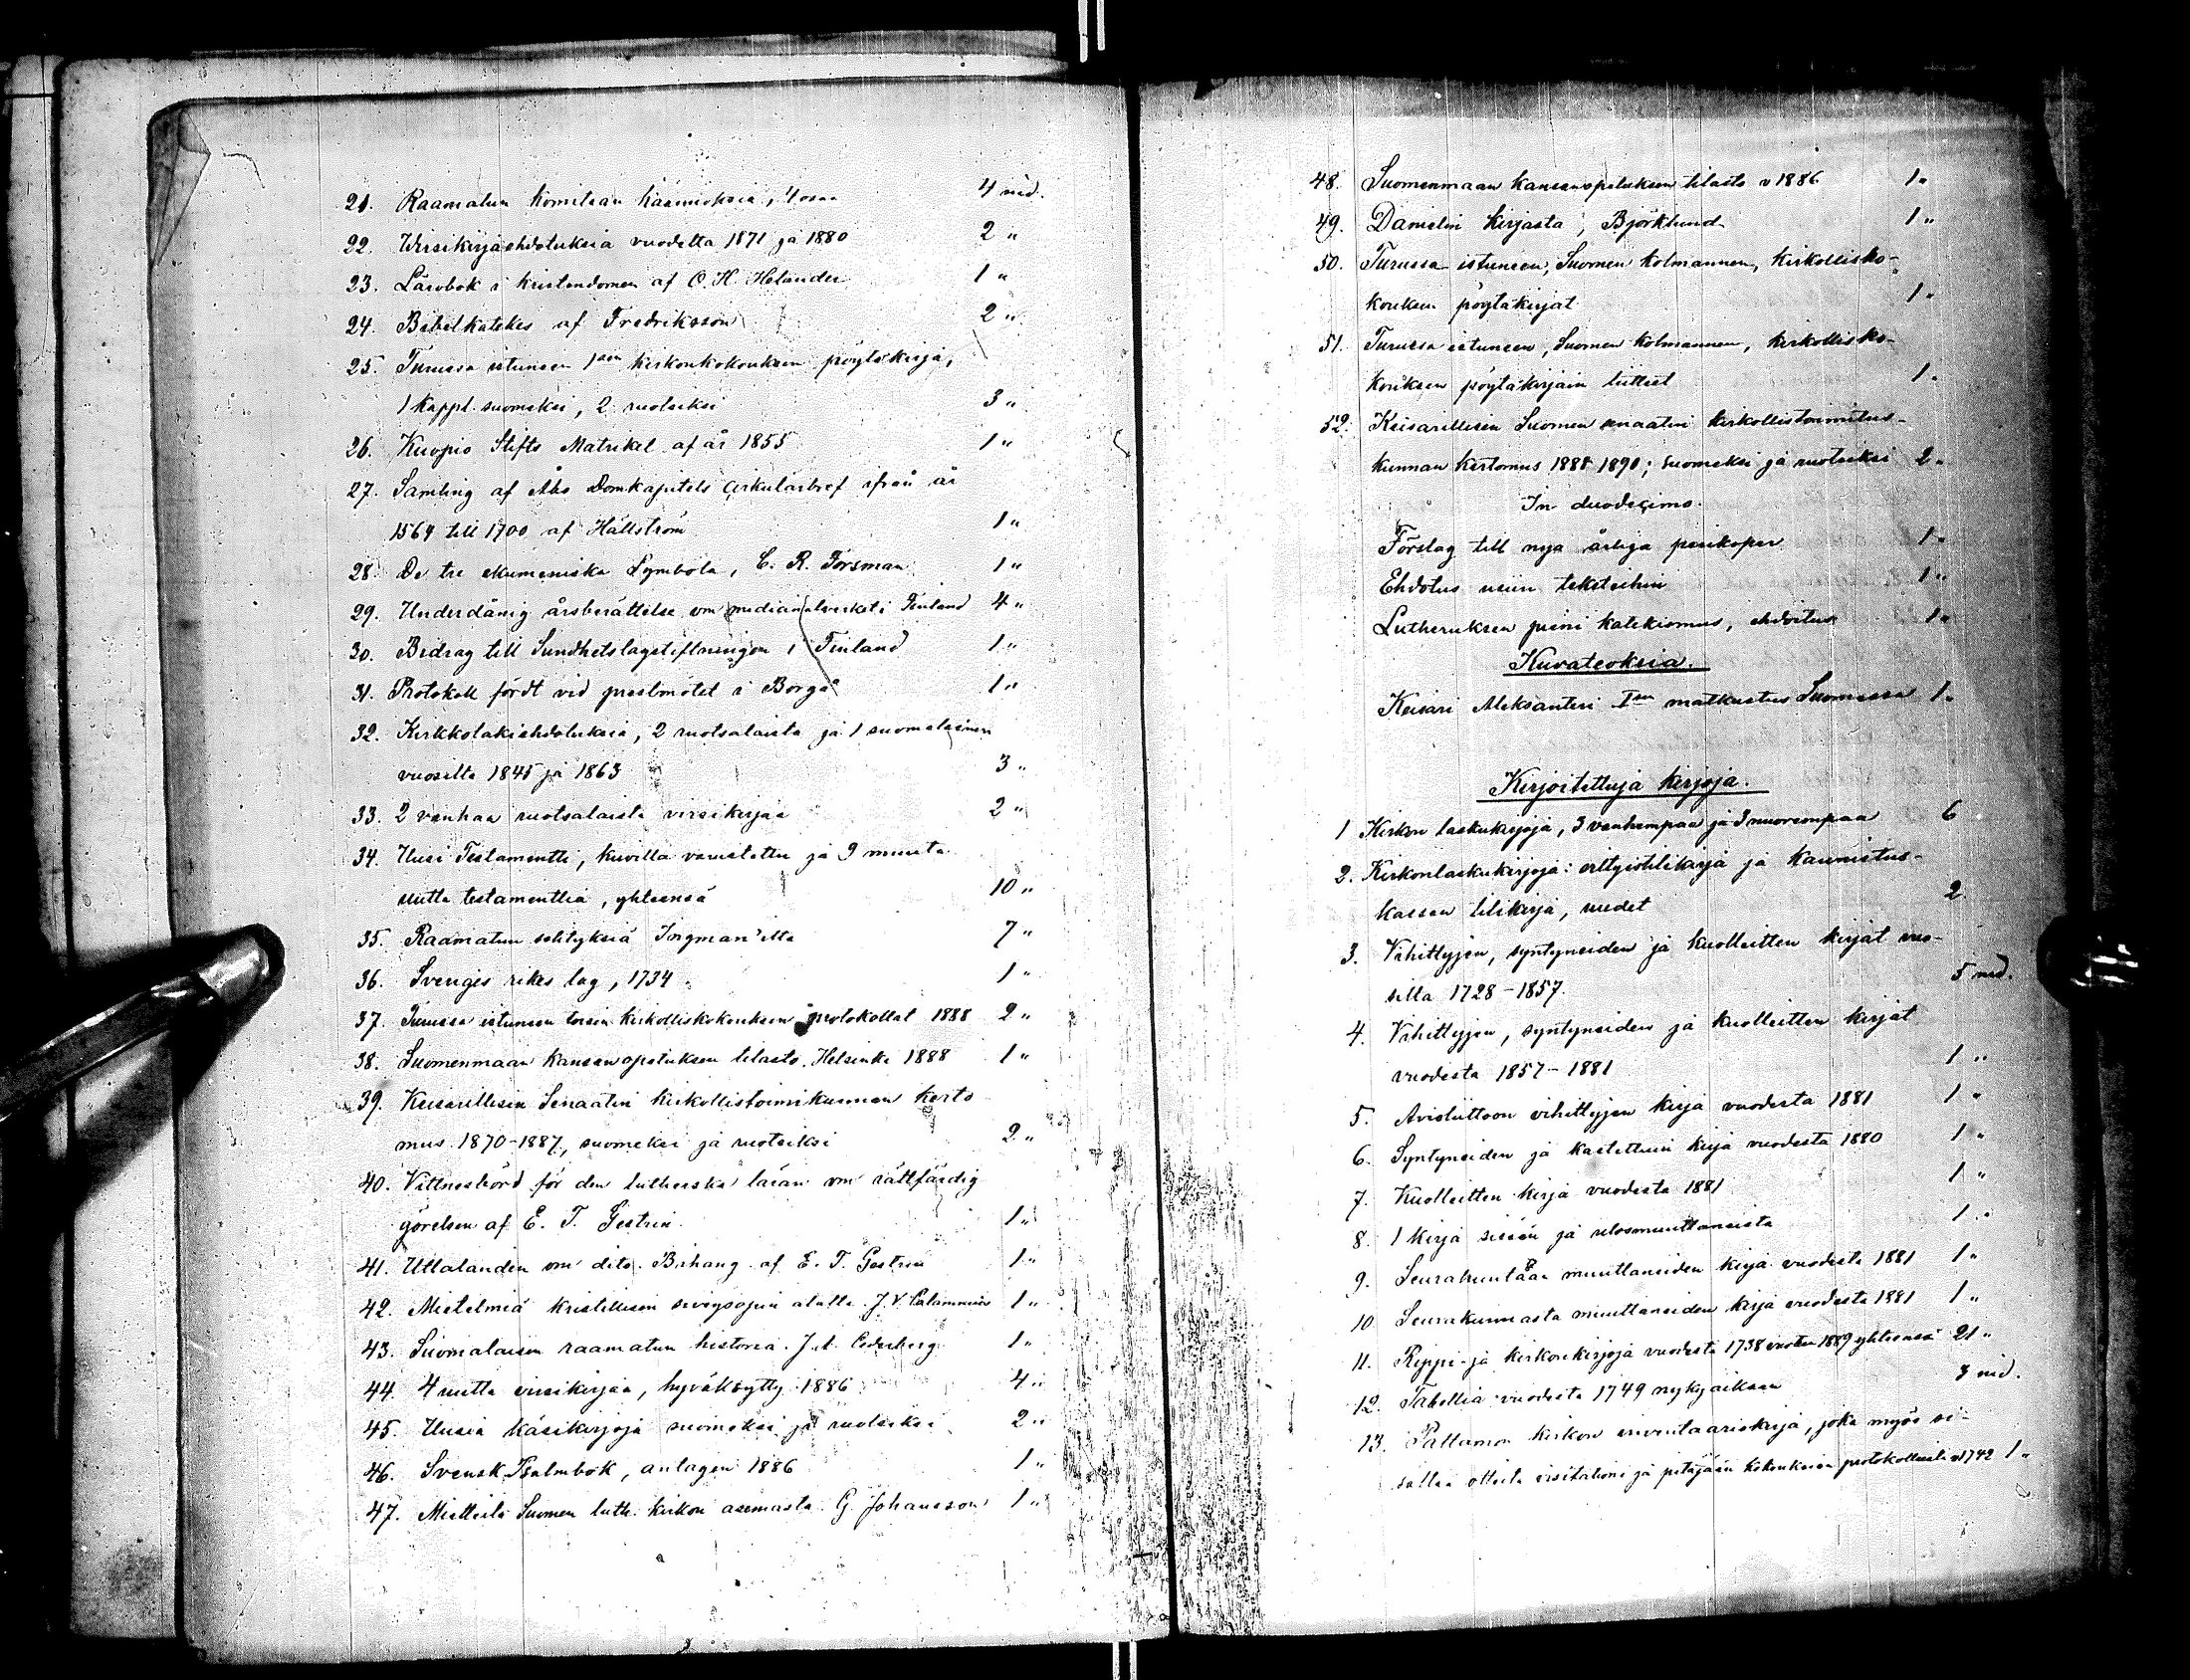 21. Raamatun komitean käännöksiä, 4 osaa 4 nid.
22. Wirsikirjaehdotuksia vuodelta 1871 ja 1880 2 "
23. Lärobok i kristendomen af O. H. Helander 1 "
24. Bibelkatekes af Fredriksson 2 "
25. Turussa istuneen 1sen kirkonkokouksen pöytäkirja,
1 kappl. suomeksi, 2 ruotsiksi 3 "
26. Kuopio Stifts Matrikel af år 1855 1 "
27. Samling af Åbo Domkapitels Cirkulärbref ifrån år
1564 till 1700 af Hällström 1 "
28. De tre ekumeniska Symbola, C. R. Forsman 1 "
29. Underdånig årsberättelse om medicinalverket i Finland 4 "
30. Bidrag till Sundhetslagstiftningen i Finland 1 "
31. Protokoll fördt vid prestmötet i Borgå 1 "
32. Kirkkolakiehdotuksia, 2 ruotsalaista ja 1 suomalainen
vuosilta 1845 ja 1863 3 "
33. 2 vanhaa ruotsalaista virsikirjaa 2 "
34. Uusi Testamentti, kuvilla varustettu ja 9 muuta
uutta testamenttia, yhteensä 10 "
35. Raamatun selityksiä Ingman'ilta 7 "
36. Sveriges rikes lag, 1734 1 "
37. Turussa istuneen toisen kirkolliskokouksen protokollat 1888 2 "
38. Suomenmaan kansanopetuksen tilasto. Helsinki 1888 1 "
39. Keisarillisen Senaatin kirkollistoimikunnan kerto
mus 1870-1887, suomeksi ja ruotsiksi 2 "
40. Vittnesbörd för den lutherska läran om rättfärdig
görelsen af E. T. Gestrin 1 "
41. Uttalanden om dito. Bihang af E. T. Gestrin 1 "
42. Mietelmiä kristillisen siveysopin alalta. J. V. Calamnius 1 "
43. Suomalaisen raamatun historia. J. A. Cederberg 1 "
44. 4 uutta virsikirjaa, hyväksytty 1886 4 "
45. Uusia käsikirjoja suomeksi ja ruotsiksi 2 "
46. Svensk Psalmbok, antagen 1886 1 "
47. Mietteitä Suomen luth. kirkon asemasta. G. Johansson 1 "
48. Suomenmaan kansanopetuksen tilasto v 1886 1 "
49. Danielin kirjasta, Björklund 1 "
50. Turussa istuneen, Suomen kolmannen, kirkollisko-
kouksen pöytäkirjat 1 "
51. Turussa istuneen, Suomen kolmannen, kirkollisko-
kouksen pöytäkirjain liitteet 1 "
52. Keisarillisen Suomen senaatin kirkollistoimitus-
kunnan kertomus 1888 1890; suomeksi ja ruotsiksi 2 "
In duodecimo.
Förslag till nya årliga perikoper 1 "
Ehdotus uusiin teksteihin 1 "
Lutheruksen pieni katekismus, ehdoitus 1 "
Kuvateoksia.
Keisari Aleksanteri Isen matkustus Suomessa 1 "
Kirjoitettuja kirjoja.
1 Kirkon laskukirjoja, 3 vanhempaa ja 3 nuorempaa 6
2. Kirkonlaskukirjoja: erityistilikirja ja kaunistus-
kassan tilikirja, uudet 2
3. Vihittyjen, syntyneiden ja kuolleitten kirjat vuo-
silta 1728-1857. 5 nid.
4. Vihittyjen, syntyneiden ja kuolleitten kirjat
vuodesta 1857-1881 1 "
5. Avioliittoon vihittyjen kirja vuodesta 1881 1 "
6. Syntyneiden ja kastettuin kirja vuodesta 1880 1 "
7. Kuolleitten kirja vuodesta 1881 1 "
8. 1 kirja sisään ja ulosmuuttaneista 1 "
9. Seurakuntaan muuttaneiden kirja vuodesta 1881 1 "
10 Seurakunnasta muuttaneiden kirja vuodesta 1881 1 "
11. Rippi- ja kirkonkirjoja vuodesta 1738 vuoteen 1889 yhteensä 21 "
12. Tabellia vuodesta 1749 nykyaikaan 3 nid.
13. Paltamon kirkon inventaariokirja, joka myös si-
sältää otteita visitationi ja pitäjään kokouksien protokollista v 1742 1 "